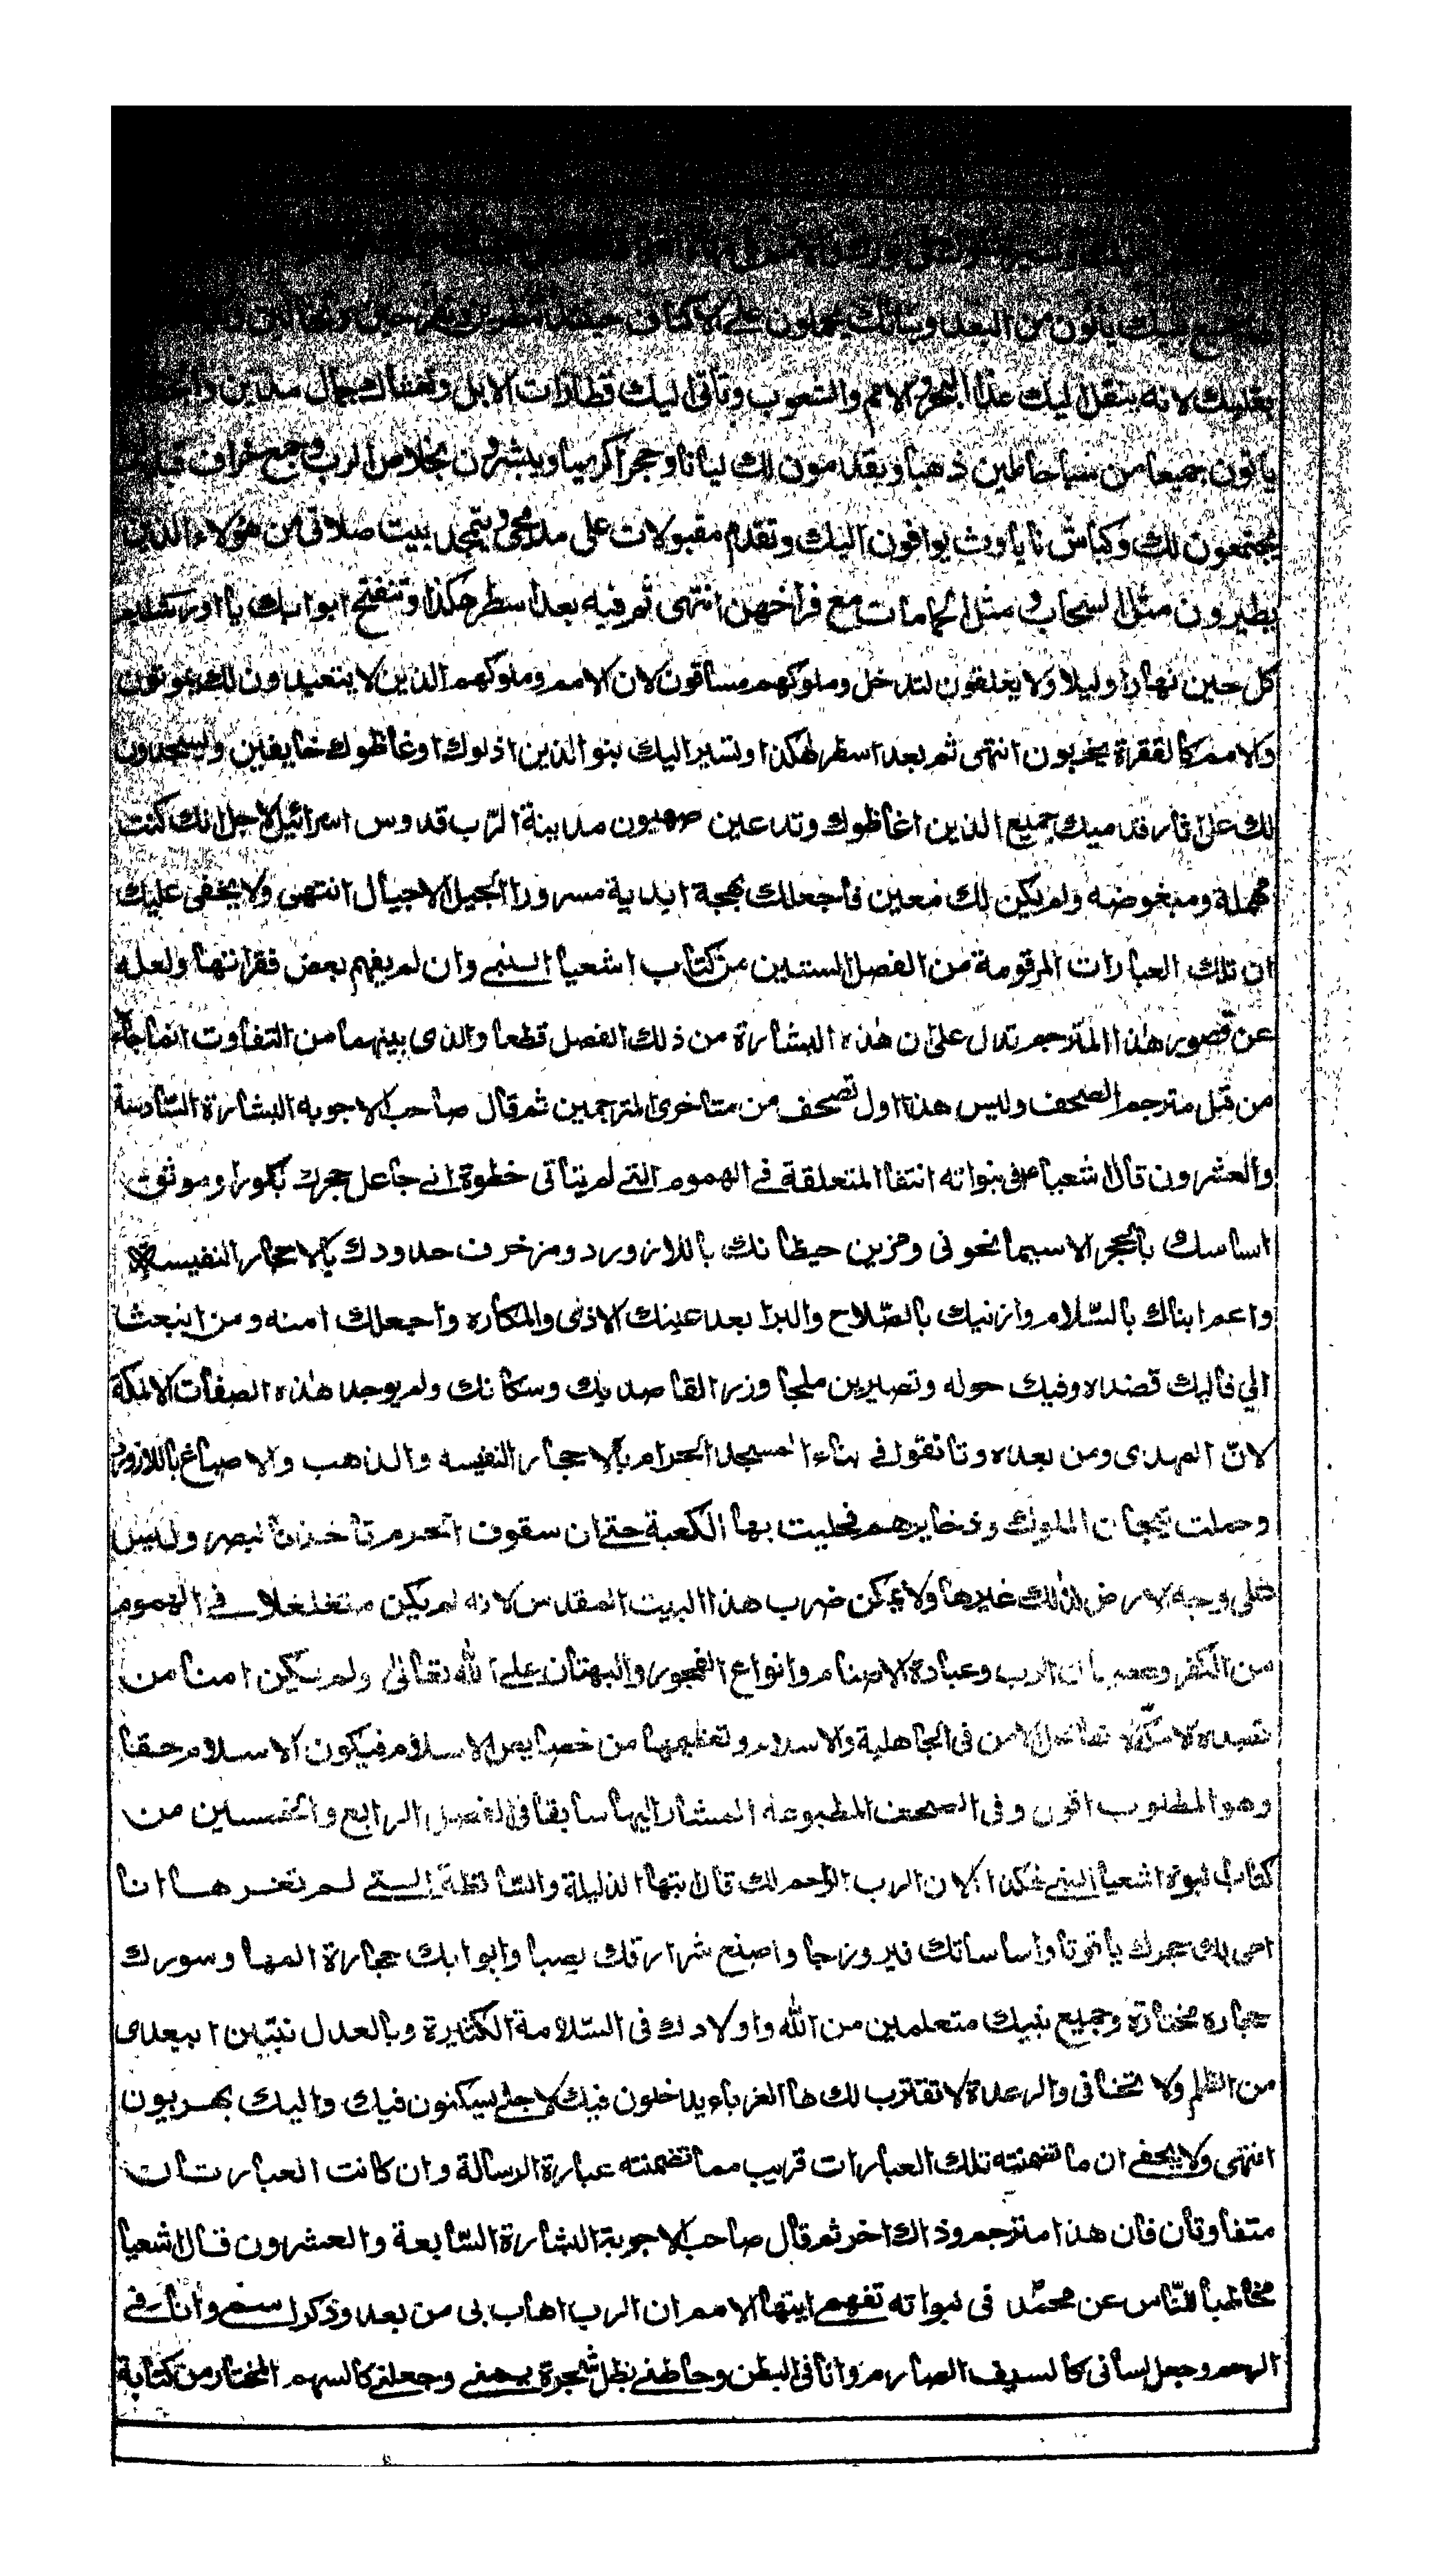 جميع بنيك ياتون من البعد وبناتك يحملون على الاكتاف حينئذ
بقلبك لانه ينتقل اليك غنا البحر والامم والشعوب وتأتى اليك قطارات الابل وتغشاك جمال مدين
ياتون جميعا من سبا حاملين ذهبا ويقدمون لك لبانا وحجرا كريما ويبشرون بخلاص الرب وجمع خراف
يجتمعون لك وكباش ناياوث يوافون اليك وتقدم مقبولات على مذبحى ويتمجد بيت صلاتى من هؤلاء الذين
يطيرون مثل السحاب ومثل الحمامات مع فراخهن انتهى ثم فيه بعد اسطر هكذا وتنفتح ابوابك يا اورشليم
كل حين نهارا وليلا ولا يغلقون لتدخل وملوكهم مساقون لان الامم وملوكهم الذين لا يتعبدون لك يموتون
والامم كالقفرة يخربون انتهى ثم بعد اسطر هكذا وتسير اليك بنو الذين اذلوك او غاظوك خايفين ويسجدون
لك على اثار قدميك جميع الذين اغاظوك وتدعين صهيون مدينة الرب قدوس اسرائيل لاجل انك كنت
مهملة ومبغوضه ولم يكن لك معين فاجعلك بهجة ابدية مسرورا الجيل الاجيال انتهى ولا يخفى عليك
ان تلك العبارات المرقومة من الفصل الستين من كتاب اشعيا النبي وان لم يفهم بعض فقراتها ولعله
عن قصور هذا المترجم تدل على ان هذه البشارة من ذلك الفصل قطعا والذى بينهما من التفاوت انما جاء
من قبل مترجم الصحف وليس هذا اول تصحف من متاخرى المترجمين ثم قال صاحب الاجوبه البشارة السادسة
والعشرون قال اشعيا في نبواته انتفا المتعلقة في الهموم التي لم يتأتى خطوة اني جاعل حجرك بكورا وموثوق
اساسك بالحجر الاسيمانحونى ومزين حيطانك باللازورد ومزخرف حدودك بالاحجار النفيسة
واعم ابناك بالسلام وازنيك بالصلاح والبر ابعد عينك الاذى والمكاره واجعلك امنه ومن انبعث
الي فاليك قصده وفيك حوله وتصيرين ملجأ وزرا لقاصديك وسكانك ولم يوجد هذه الصفات الا لمكة
لان المهدى ومن بعده وتانقوا في بناء المسجد الحرام بالاحجار النفيسه والذهب والاصباغ باللازورد
وحملت تيجان الملوك وذخايرهم فحليت بها الكعبة حتى ان سقوف الحرم تأخذ البصر وليس
على وجه الارض لذلك غيرها ولا يمكن ضرب هذا البيت المقدس لانه لم يكن متغلغلا في الهموم
من الكفر وعصيان الرب وعبادة الاصنام وانواع الفجور والبهتان على الله تعالى ولم يكن امنا من
قصده الا مكة الامن فى الجاهلية والاسلام وتعظيمها من خصايص الاسلام فيكون الاسلام حقا
وهو المطلوب اقول وفى الصحف المطبوعه المشار اليها سابقا فى الفصل الرابع والخمسين من
كتاب نبوة اشعيا النبي هكذا لان الرب الراحم لك قال ايتها الذليلة والساقطة التي لم تعز ها انا
احى بلك حجرك ياقوتا واساساتك فيروزجا واصنع شرارقك يصبا وابوابك حجارة المها وسورك
حجاره مختارة وجميع بنيك متعلمين من الله واولادك فى السلامة الكثيرة وبالعدل تبتين ابعدى
من الظلم ولا تخافى والرعدة لا تقترب لك ها الغرباء يدخلون فيك لاجلي يسكنون فيك واليك يهربون
انتهى ولا يخفى ان ما تضمنته تلك العبارات قريب مما تضمنته عبارة الرسالة وان كانت العبارتان
متفاوتان فان هذا مترجم وذاك اخر ثم قال صاحب الاجوبة البشارة السابعة والعشرون قال اشعيا
مخاطبا للناس عن محمد فى نبواته تفهمي ايتها الامم ان الرب اهاب بى من بعد وذكر اسمي وانا في
الرحم وجعل لسانى كالسيف الصارم وانا فى البطن وحاطني بظل شجرة يمني وجعلني كالسهم المختار من كتابة